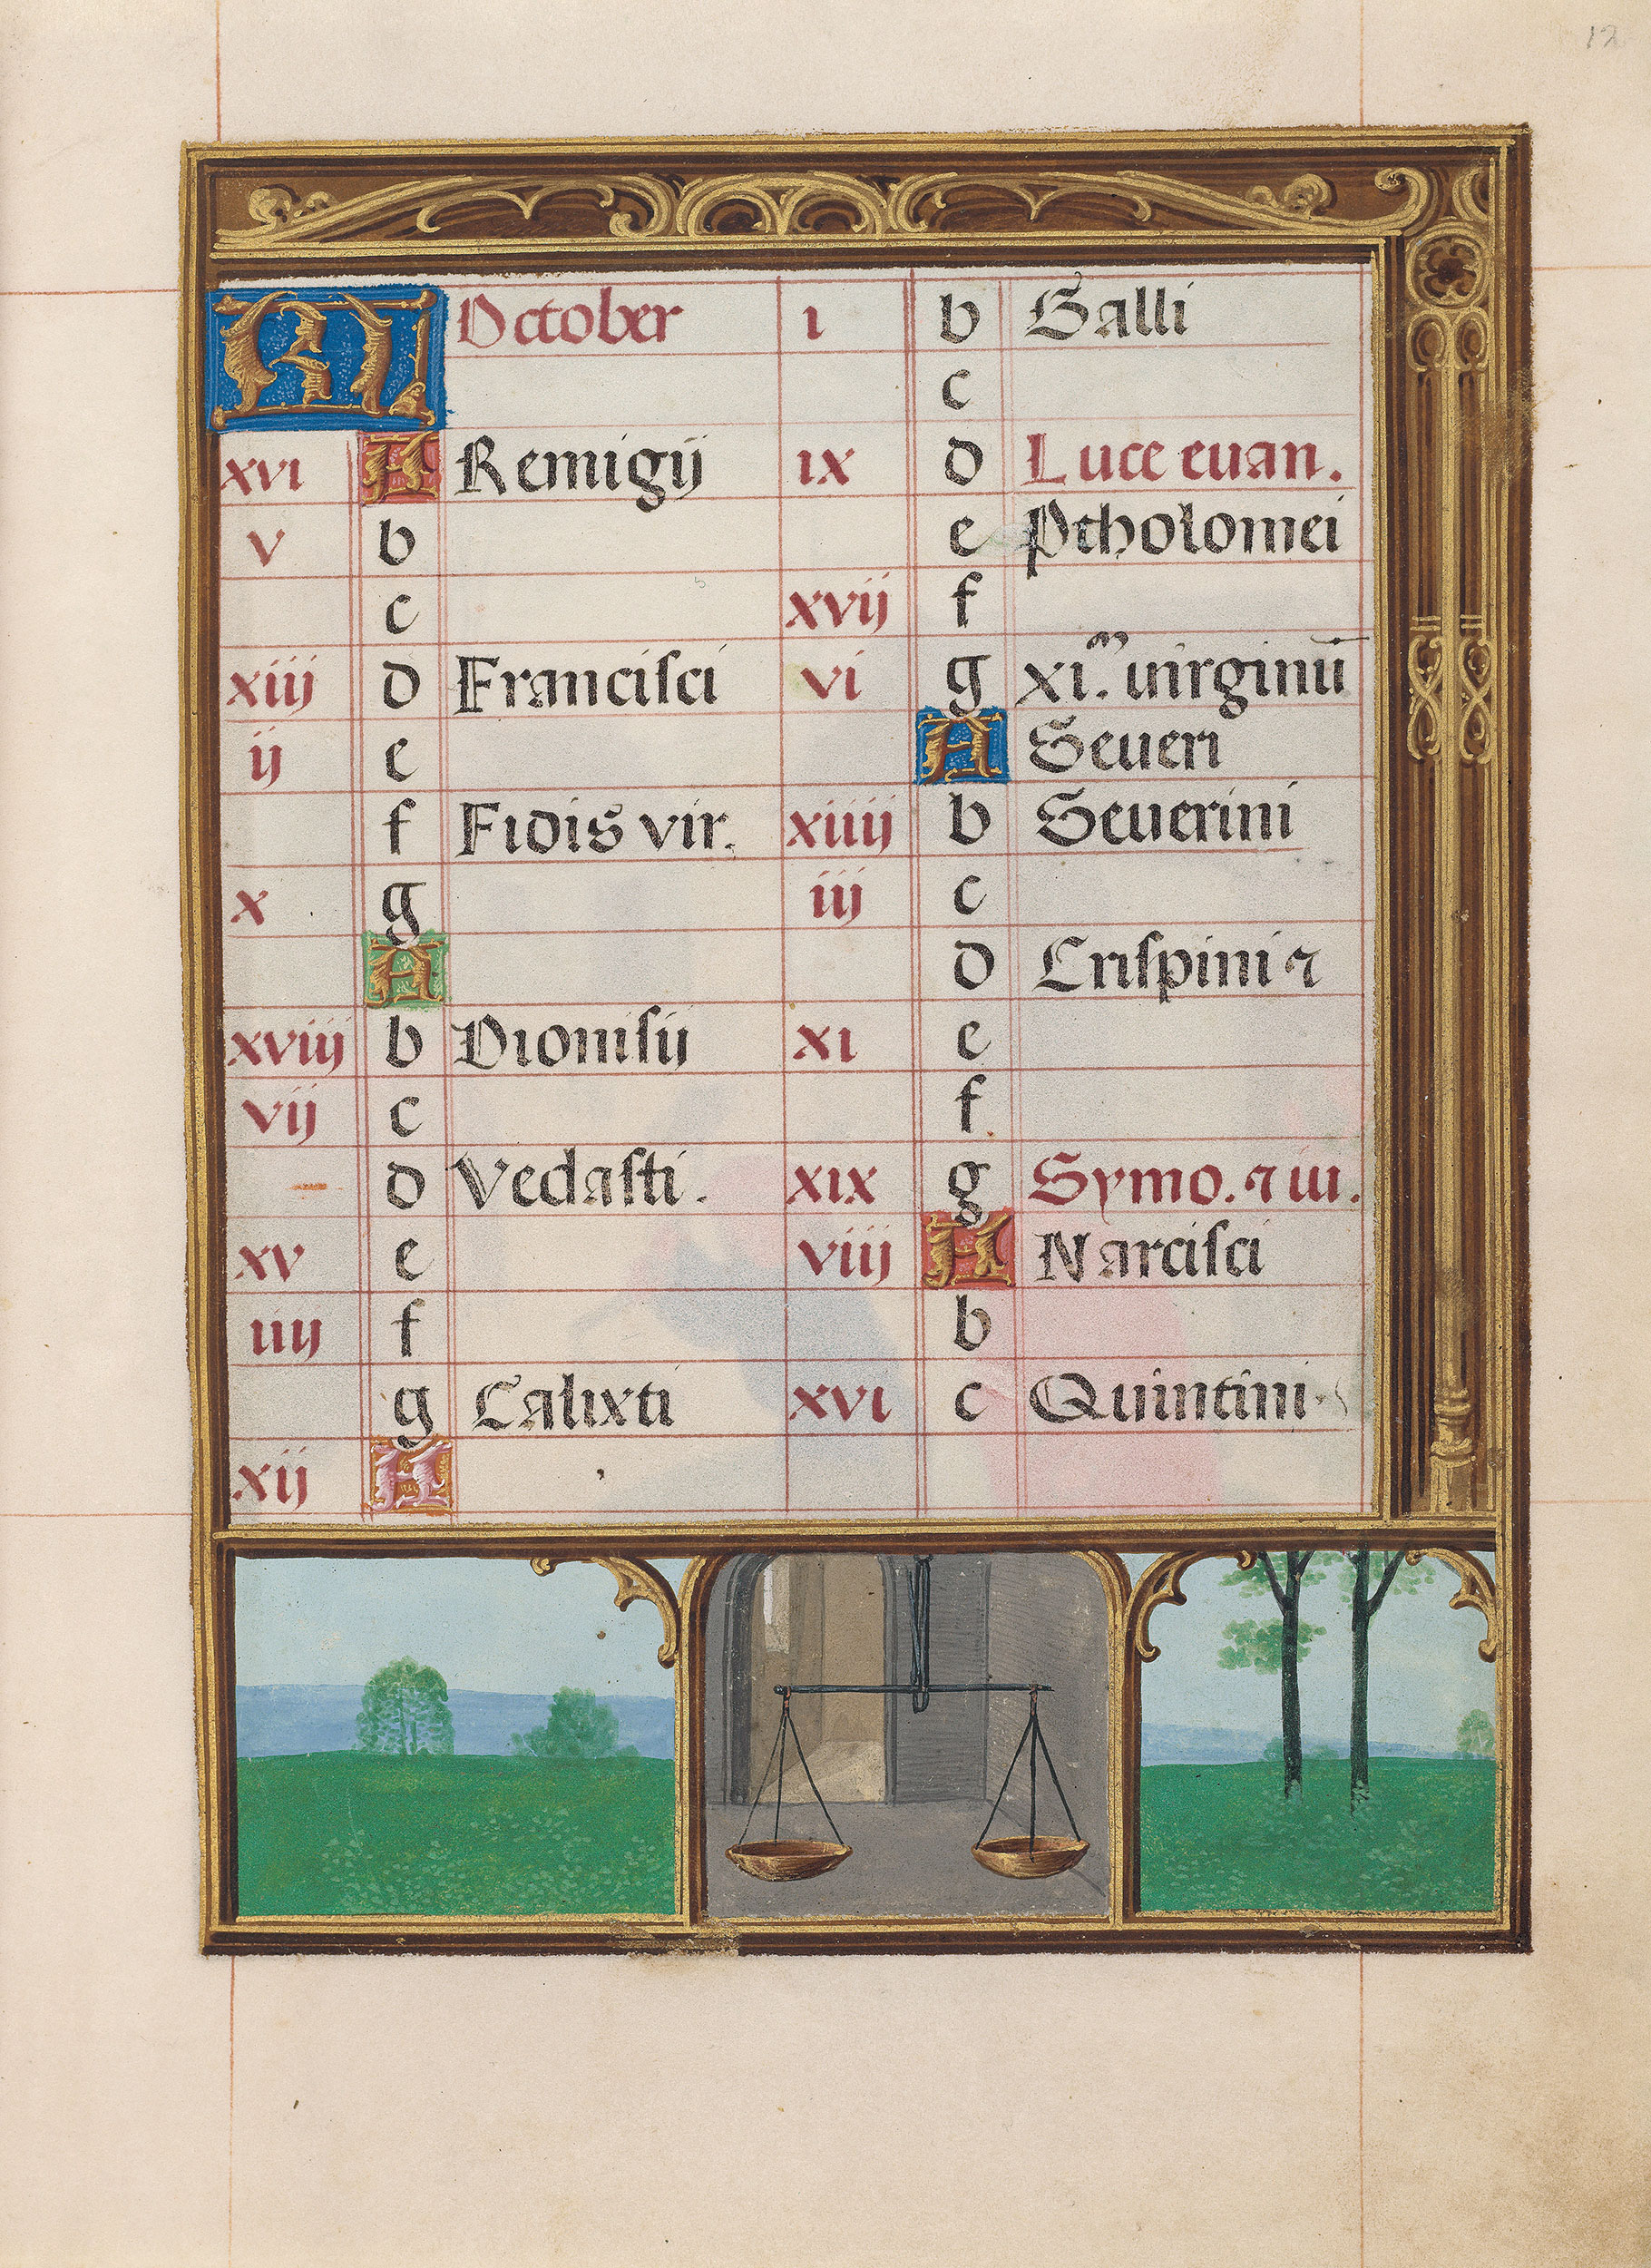 12
KL October
xvi A Remigij
v b
c
xiij d Francisci
ij e
f Fidis vir.
x g
A
xviij b Dionisij
vij c
d Vedasti.
xv e
iiij f
g Calixti
xij A
i b Galli
c
ix d Luce euan.
e Ptholomei
xvij f
vi g xi.ͫ virginū
A Seueri
xiiij b Seuerini
iij c
d Crispini ⁊
xi e
f
xix g Symo. ⁊ iu.
viij A Narcisci
b
xvi c Quintini.